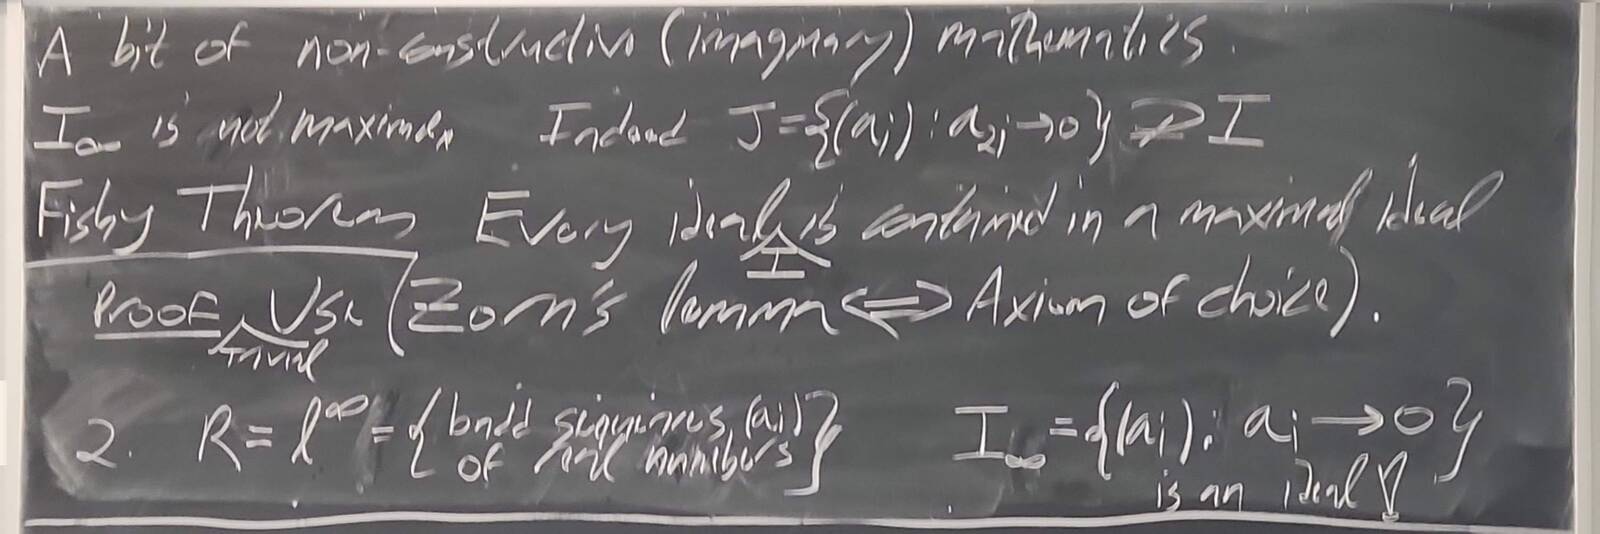 A bit of non-constructive (imaginary) mathematics.
I∞ is not maximal. Indeed J={(aᵢ) : a₂ᵢ→0} ⊋ I
Fishy Theorem Every ideal I is contained in a maximal ideal
Proof trivial Use (Zorn's lemma ⟺ Axiom of choice).
2. R = l^∞ = {bdd sequences (aᵢ) of real numbers} I∞ = {(aᵢ) : aᵢ → 0}
is an ideal ∇